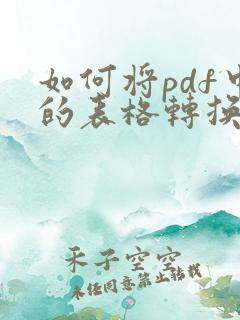 如何将pdf中
的表格轉换
禾子空空
未经同意禁止转载